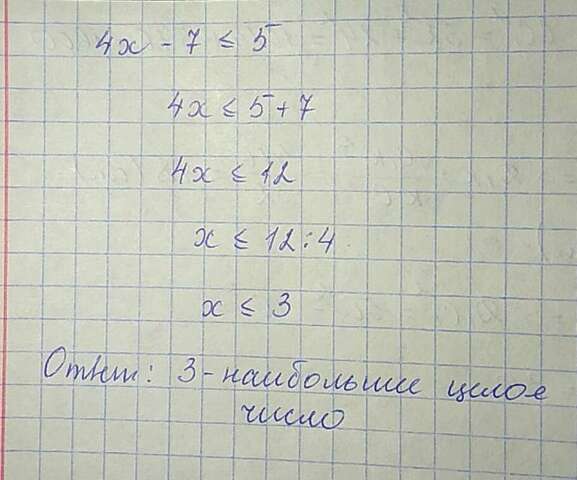 4x - 7 ≤ 5
4x ≤ 5 + 7
4x ≤ 12
x ≤ 12 : 4
x ≤ 3
Ответ: 3 - наибольшее целое
число